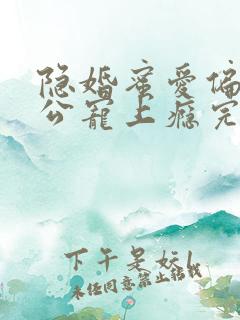 隐婚蜜爱偏
公宠上瘾完
下午是妖
未经同意禁止转载